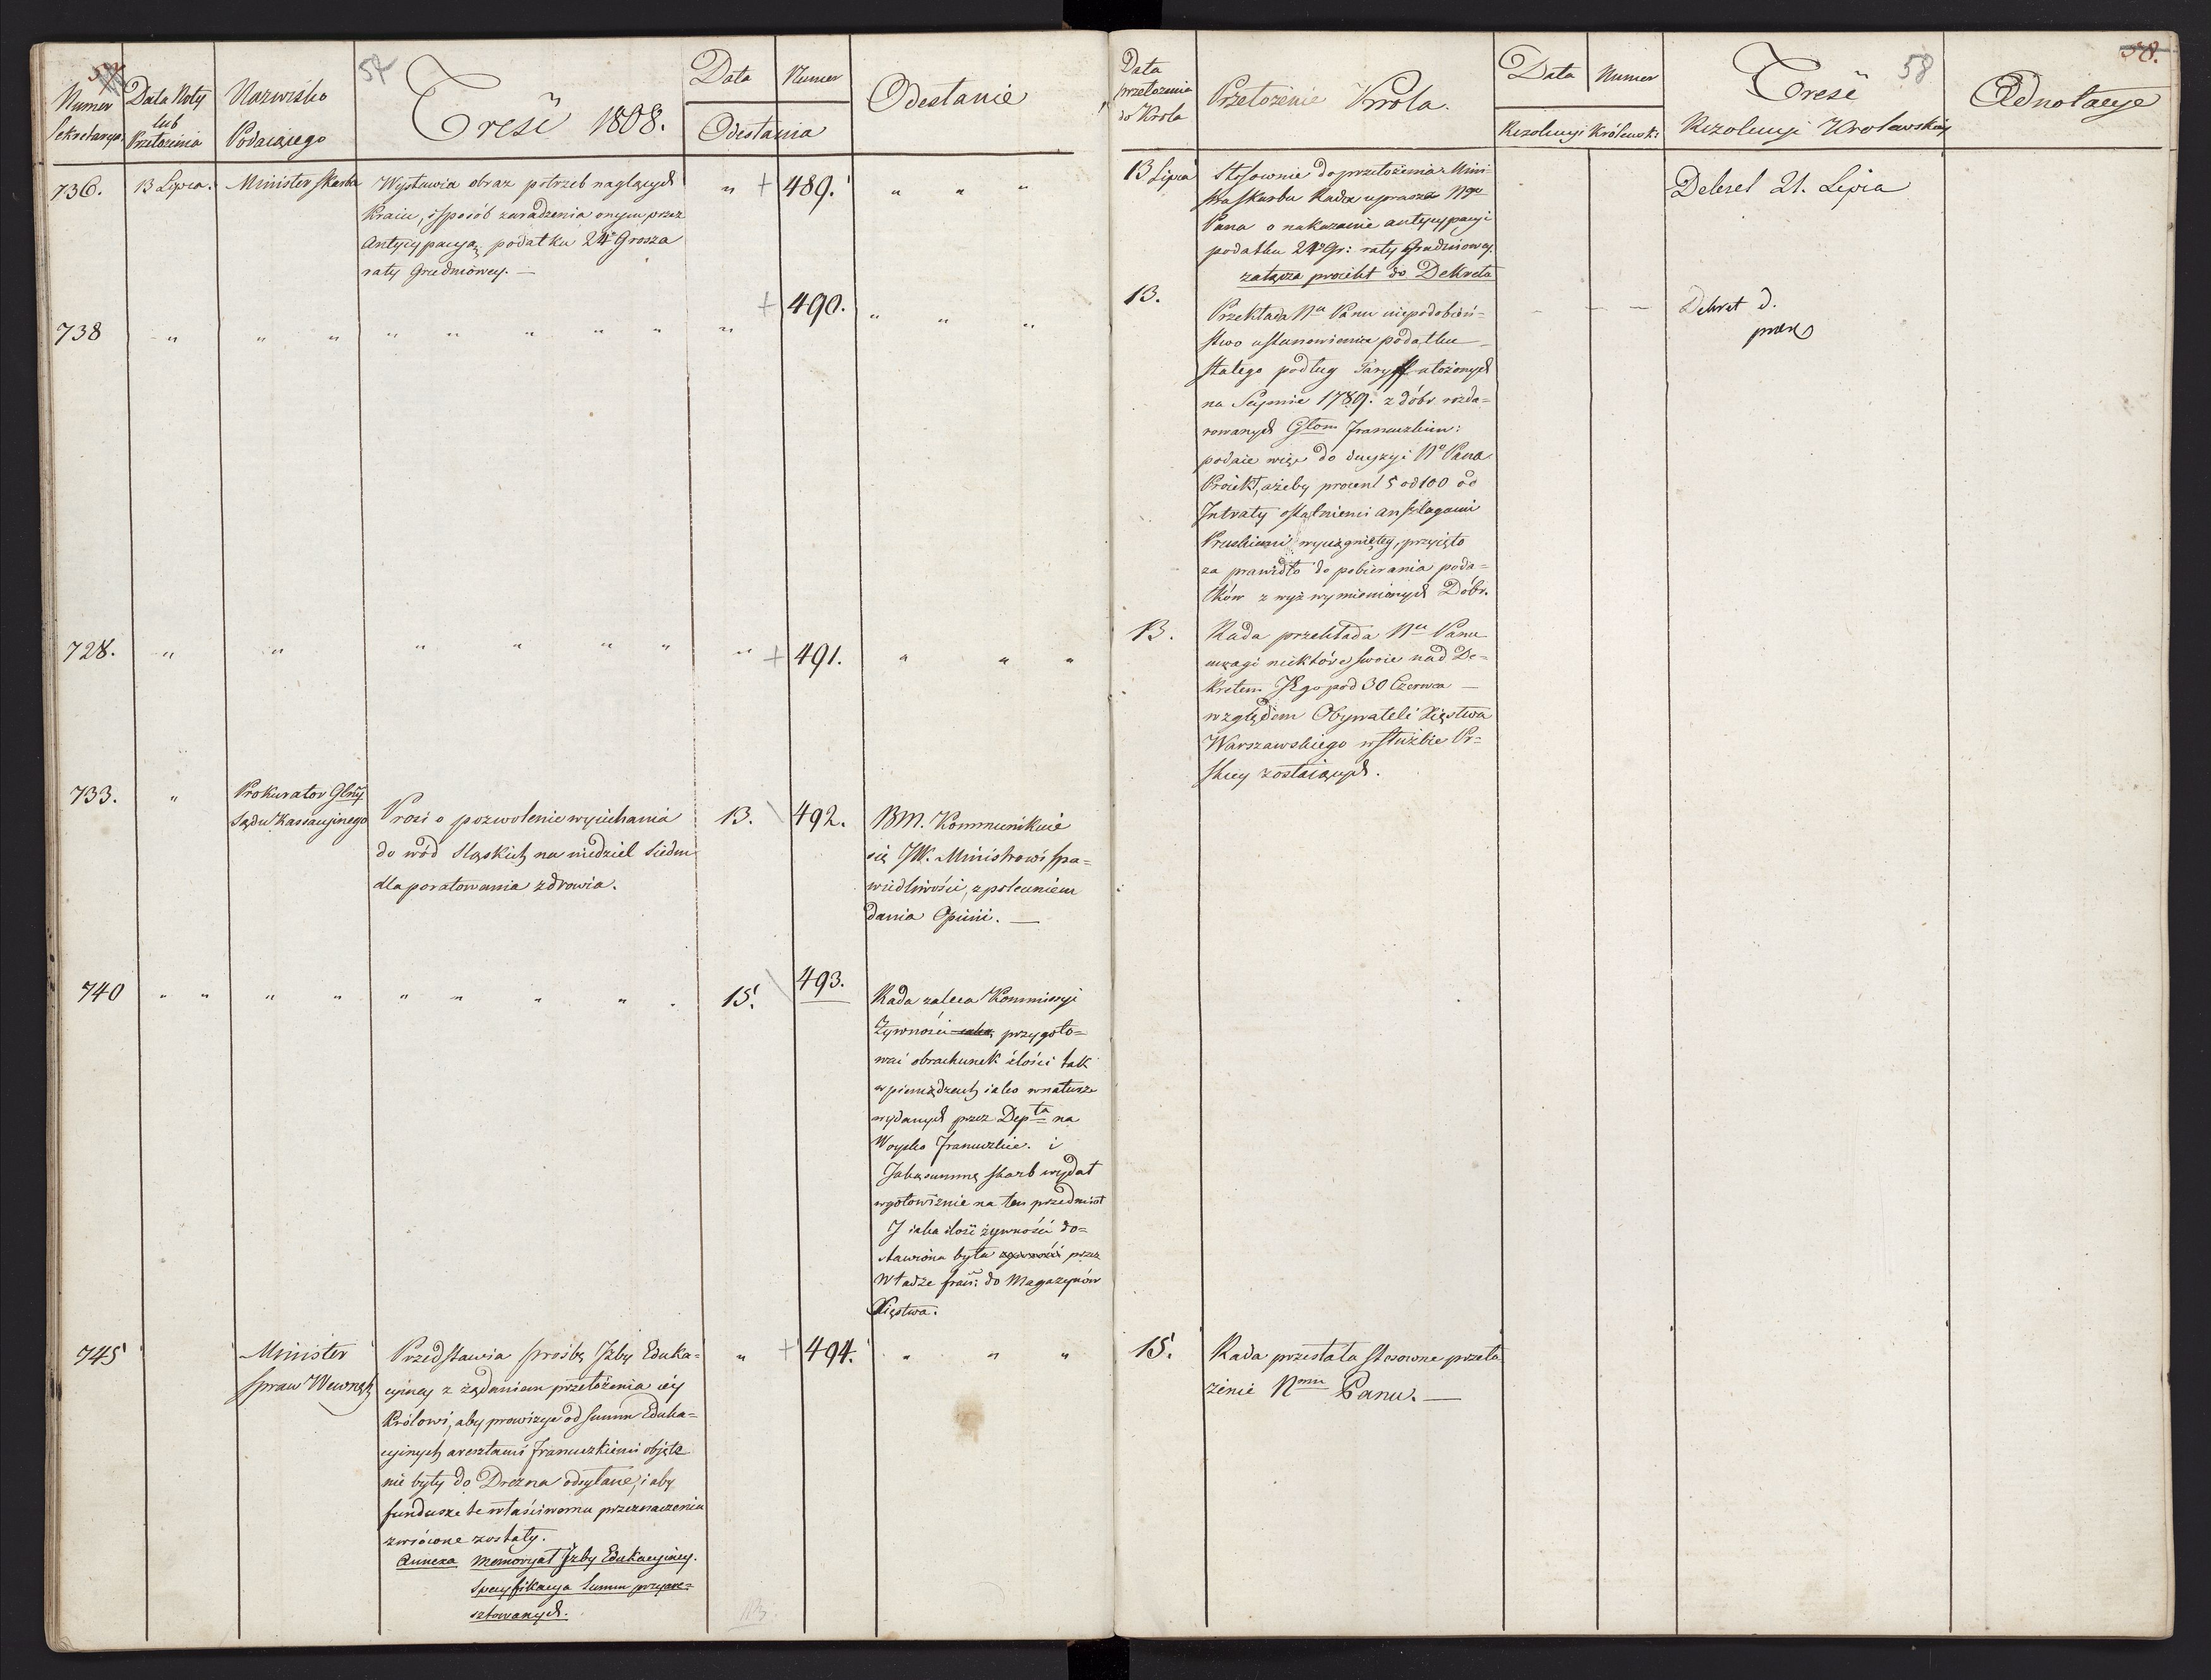 57
Numer
Sekretaryi.
Data Noty
lub
Przełożenia
Nazwisko
Podaiącego
Treść 1808.
Data
Numer
Odesłania
Odesłanie
736.
13 Lipca.
Minister Skarbu
Wystawia obraz potrzeb naglących
Kraiu, i sposób zaradzenia onym przez
Antycypacyą podatku 24o Grosza
raty Grudniowey. —
" + 489.
" " "
738
" " " " " " " " "
+ 490.
" " "
728.
" " " " " " "
+ 491.
" " "
733.
"
Prokurator Glny
Sądu Kassacyinego
Prosi o pozwolenie wyiechania
do wód Sląskich na niedziel siedm
dla poratowania zdrowia.
13.
492.
BM. Kommunikuie
się JW. Ministrowi spra=
wiedliwości, z poleceniem
dania Opinii. —
740
" " " " " " " " "
15.
493.
Rada zaleca Kommissyi
Żywności przygoto=
wać obrachunek ilości tak
w pieniądzach iako w naturze
wydanych przez Depta na
Woysko Francuzkie. i
Jaką summę skarb wydał
w gotowiźnie na ten przedmiot
J iaka ilość żywności do=
stawiona była żywności przez
Władze fran: do Magazynów
Xięstwa.
745
Minister
Spraw Wewnętz
Przedstawia prośbę Jzby Eduka=
cyiney z żądaniem przełożenia iey
Królowi, aby prowizye od summ Eduka=
cyinych aresztami Francuzkiemi objęte
nie były do Drezna odsyłane, i aby
fundusze te właściwemu przeznaczeniu
zwrócone zostały.
Annexa Memoryał Jzby Edukacyiney.
Specyfikacya Summ przyare=
sztowanych.
" + 494.
" " "
58
58.
Data
przełożenia
do Króla
Przełożenie Króla.
Data
Numer
Rezolucyi Królewski
Treść
Rezolucyi Krolewskiey
Adnotacye
13 Lipca
Stosownie do przełożenia Mini=
stra Skarbu Rada uprasza Ngo
Pana o nakazanie antycypacyi
podatku 24o Gr: raty Grudniowey.
załącza proiekt do Dekretu
Dekret 21. Lipca
13.
Przekłada Nu Panu niepodobień=
stwo ustanowienia podatku
stałego podług Taryff ułożonych
na Seymie 1789. z dóbr rozda=
rowanych Głom Francuzkim:
podaie więc do decyzyi No Pana
Proiekt, ażeby procent 5 od 100 od
Jntraty ostatniemi anszlagami
Pruskiemi wyciągniętey, przyięto
za prawidło do pobierania poda=
tków z wyż wymienionych Dóbr.
- — —
Dekret d.
13.
Rada przekłada Nu Panu
uwagi niektóre swoie nad De=
kretem Jego pod 30 Czerwca —
względem Obywateli Xięstwa
Warszawskiego w służbie Pr=
skiey zostaiących.
15.
Rada przesłała stosowne przeło
żenie Nmu Panu. —